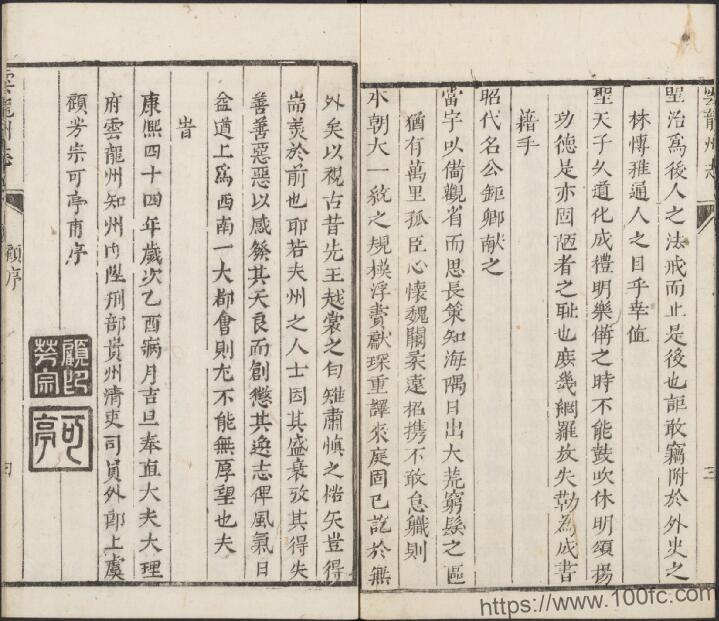 雲龍州志
三
聖治為後人之法戒而止是役也詎敢竊附於外史之
林傳雅通人之目乎幸值
聖天子久道化成禮明樂備之時不能鼓吹休明頌揚
功德是亦固陋者之耻也庶幾網羅放失勒為成書
藉手
昭代名公鉅卿獻之
當宁以備觀省而思長策知海隅日出大荒窮髮之區
猶有萬里孤臣心懷魏闕柔遠招携不敢怠職則
本朝大一統之規模浮賮獻琛重譯來庭固已訖於無
外矣以視古昔先王越裳之白雉肅慎之楛矢豈得
耑羡於前也耶若夫州之人士因其盛衰攷其得失
善善惡惡以感發其天良而創懲其逸志俾風氣日
益道上為西南一大都會則尤不能無厚望也夫
旹
康熙四十四年歲次乙酉病月吉旦奉直大夫大理
府雲龍州知州内陞刑部貴州清吏司員外郎上虞
顧芳宗可亭甫序
顧芳宗印
可亭
雲龍州志
顧序
四
https://www.100fc.com